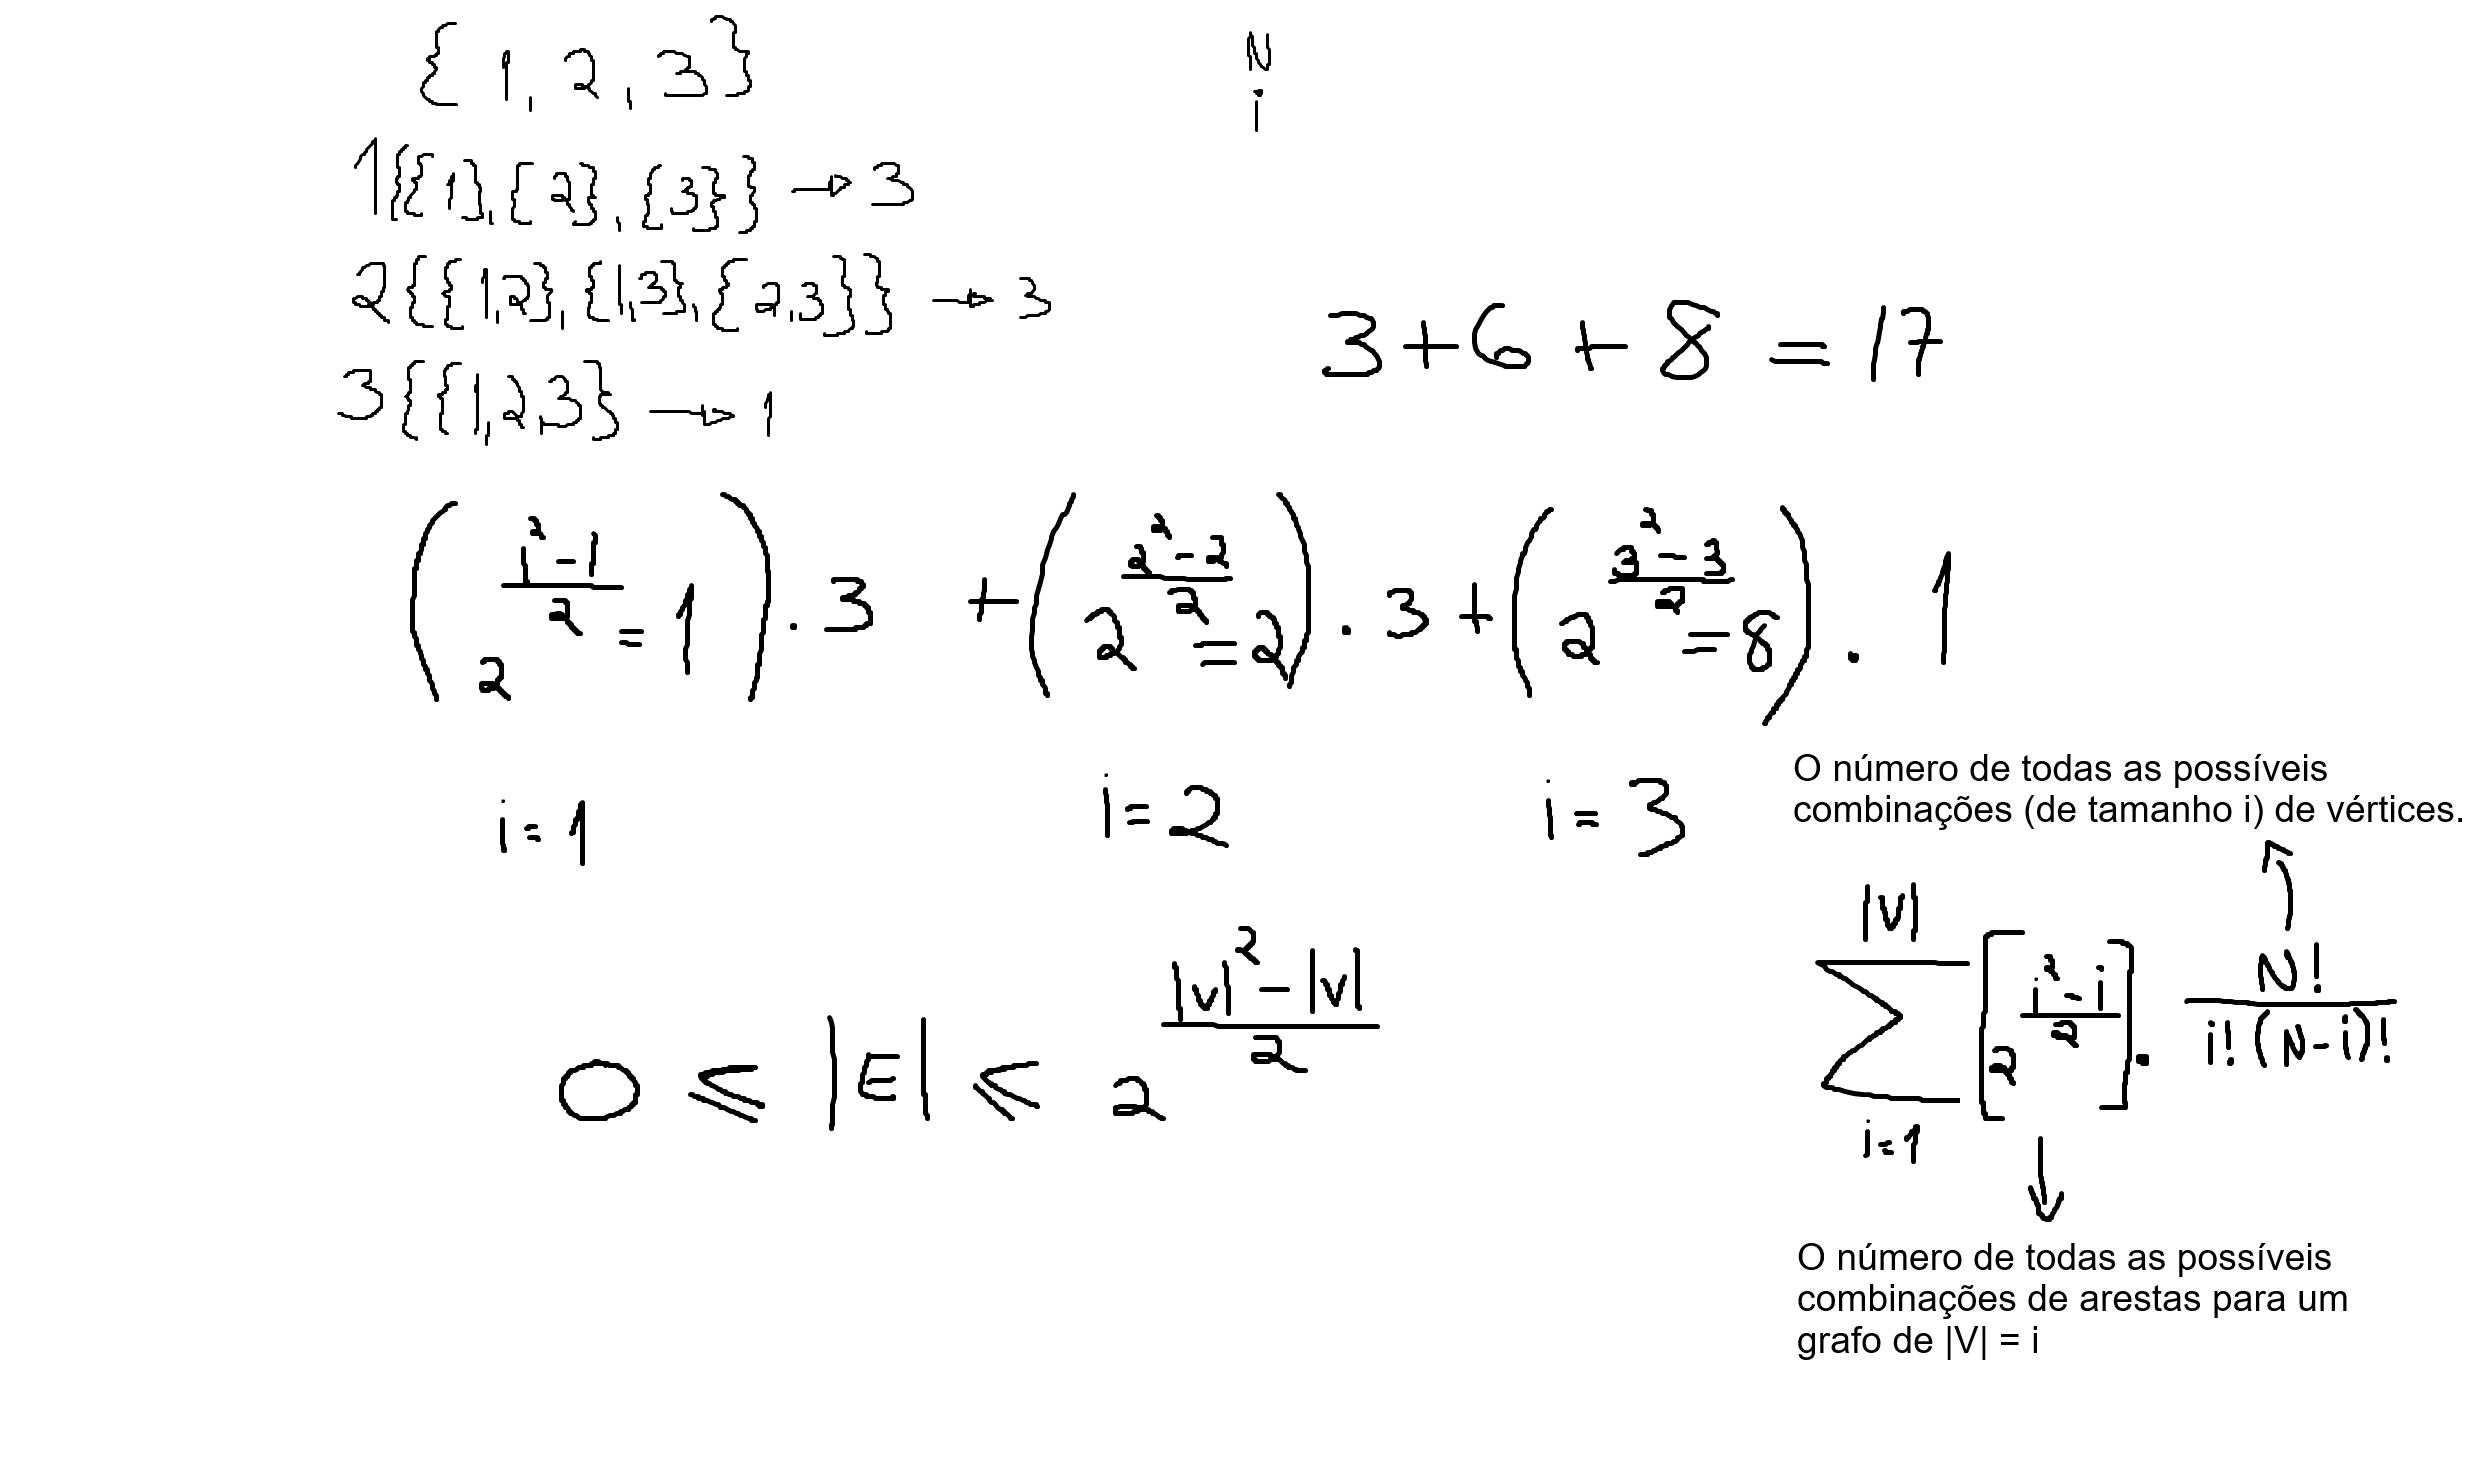 { 1, 2, 3 }
N
i
1 {{1}, {2}, {3}} → 3
2 {{1,2}, {1,3}, {2,3}} → 3
3 {{1,2,3} → 1
3 + 6 + 8 = 17
(2^((1^2 - 1)/2) = 1) . 3 + (2^((2^2 - 2)/2) = 2) . 3 + (2^((3^2 - 3)/2) = 8) . 1
i = 1
i = 2
i = 3
O número de todas as possíveis
combinações (de tamanho i) de vértices.
0 ≤ |E| ≤ 2^((|V|^2 - |V|)/2)
∑_{i=1}^{|V|} [2^((i^2 - i)/2)] . N!/(i!(N-i)!)
O número de todas as possíveis
combinações de arestas para um
grafo de |V| = i